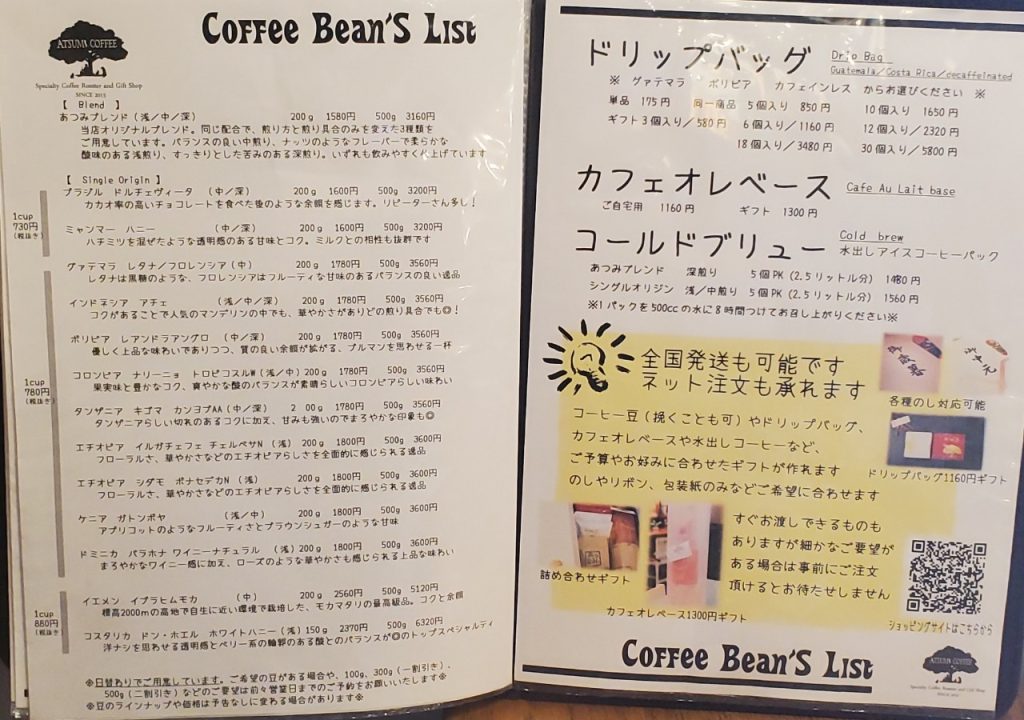 ATSUMI COFFEE
Specialty Coffee Roaster and Gift Shop
SINCE 2015
Coffee Bean'S List
【 Blend 】
あつみブレンド（浅／中／深） 200g 1580円 500g 3160円
当店オリジナルブレンド。同じ配合で、煎り方と煎り具合のみを変えた3種類を
ご用意しています。バランスの良い中煎り、ナッツのようなフレーバーで柔らかな
酸味のある浅煎り、すっきりとした苦みのある深煎り。いずれも飲みやすく仕上げています
【 Single Origin 】
1cup
730円
(税抜き)
ブラジル ドルチェヴィータ （中／深） 200g 1600円 500g 3200円
カカオ率の高いチョコレートを食べた後のような余韻を感じます。リピーターさん多し！
ミャンマー ハニー （中／深） 200g 1600円 500g 3200円
ハチミツを混ぜたような透明感のある甘味とコク。ミルクとの相性も抜群です
1cup
780円
(税抜き)
グァテマラ レタナ/フロレンシア（中） 200g 1780円 500g 3560円
レタナは黒糖のような、フロレンシアはフルーティな甘味のあるバランスの良い逸品
インドネシア アチェ （浅／中／深） 200g 1780円 500g 3560円
コクがあることで人気のマンデリンの中でも、華やかさがありどの煎り具合でも◎！
ボリビア レアンドラアングロ （中／深） 200g 1780円 500g 3560円
優しく上品な味わいでありつつ、質の良い余韻が拡がる、ブルマンを思わせる一杯
コロンビア ナリーニョ トロピコスルW（浅／中）200g 1780円 500g 3560円
果実味と豊かなコク、爽やかな酸のバランスが素晴らしいコロンビアらしい味わい
タンザニア キゴマ カンヨブAA（中／深） 2 00g 1780円 500g 3560円
タンザニアらしい切れのあるコクに加え、甘みも強いのでまろやかな印象も◎
エチオピア イルガチェフェ チェルベサN （浅） 200g 1800円 500g 3600円
フローラルさ、華やかさなどのエチオピアらしさを全面的に感じられる逸品
エチオピア シダモ ボナセデカN （浅） 200g 1800円 500g 3600円
フローラルさ、華やかさなどのエチオピアらしさを全面的に感じられる逸品
ケニア ガトンボヤ （浅／中） 200g 1800円 500g 3600円
アプリコットのようなフルーティさとブラウンシュガーのような甘味
ドミニカ バラホナ ワイニーナチュラル （浅）200g 1800円 500g 3600円
まろやかなワイニー感に加え、ローズのような華やかさも感じられる上品な味わい
1cup
880円
(税抜き)
イエメン イブラヒムモカ （中） 200g 2560円 500g 5120円
標高2000mの高地で自生に近い環境で栽培した、モカマタリの最高級品。コクと余韻
コスタリカ ドン・ホエル ホワイトハニー（浅）150g 2370円 500g 6320円
洋ナシを思わせる透明感とベリー系の輪郭のある酸とのバランスが◎のトップスペシャルティ
※日替わりでご用意しています。ご希望の豆がある場合や、100g、300g（一割引き）、
500g（二割引き）などのご要望は前々営業日までのご予約をお願いいたします※
※豆のラインナップや価格は予告なしに変わる場合があります※
ドリップバッグ Drip Bag
Guatemala／Costa Rica／decaffeinated
※ グァテマラ ボリビア カフェインレス からお選びください ※
単品 175円 同一商品 5個入り 850円 10個入り 1650円
ギフト3個入り／580円 6個入り／1160円 12個入り／2320円
18個入り／3480円 30個入り／5800円
カフェオレベース Cafe Au Lait base
ご自宅用 1160円 ギフト 1300円
コールドブリュー Cold brew
水出しアイスコーヒーパック
あつみブレンド 深煎り 5個PK（2.5リットル分） 1480円
シングルオリジン 浅／中煎り 5個PK（2.5リットル分） 1560円
※1パックを500ccの水に8時間つけてお召し上がりください※
全国発送も可能です
ネット注文も承れます
各種のし対応可能
コーヒー豆（挽くことも可）やドリップバッグ、
カフェオレベースや水出しコーヒーなど、
ご予算やお好みに合わせたギフトが作れます
のしやリボン、包装紙のみなどご希望に合わせます
ドリップバッグ1160円ギフト
すぐお渡しできるものも
ありますが細かなご要望が
ある場合は事前にご注文
頂けるとお待たせしません
詰め合わせギフト
カフェオレベース1300円ギフト
ショッピングサイトはこちらから
Coffee Bean'S List
ATSUMI COFFEE
Specialty Coffee Roaster and Gift Shop
SINCE 2015